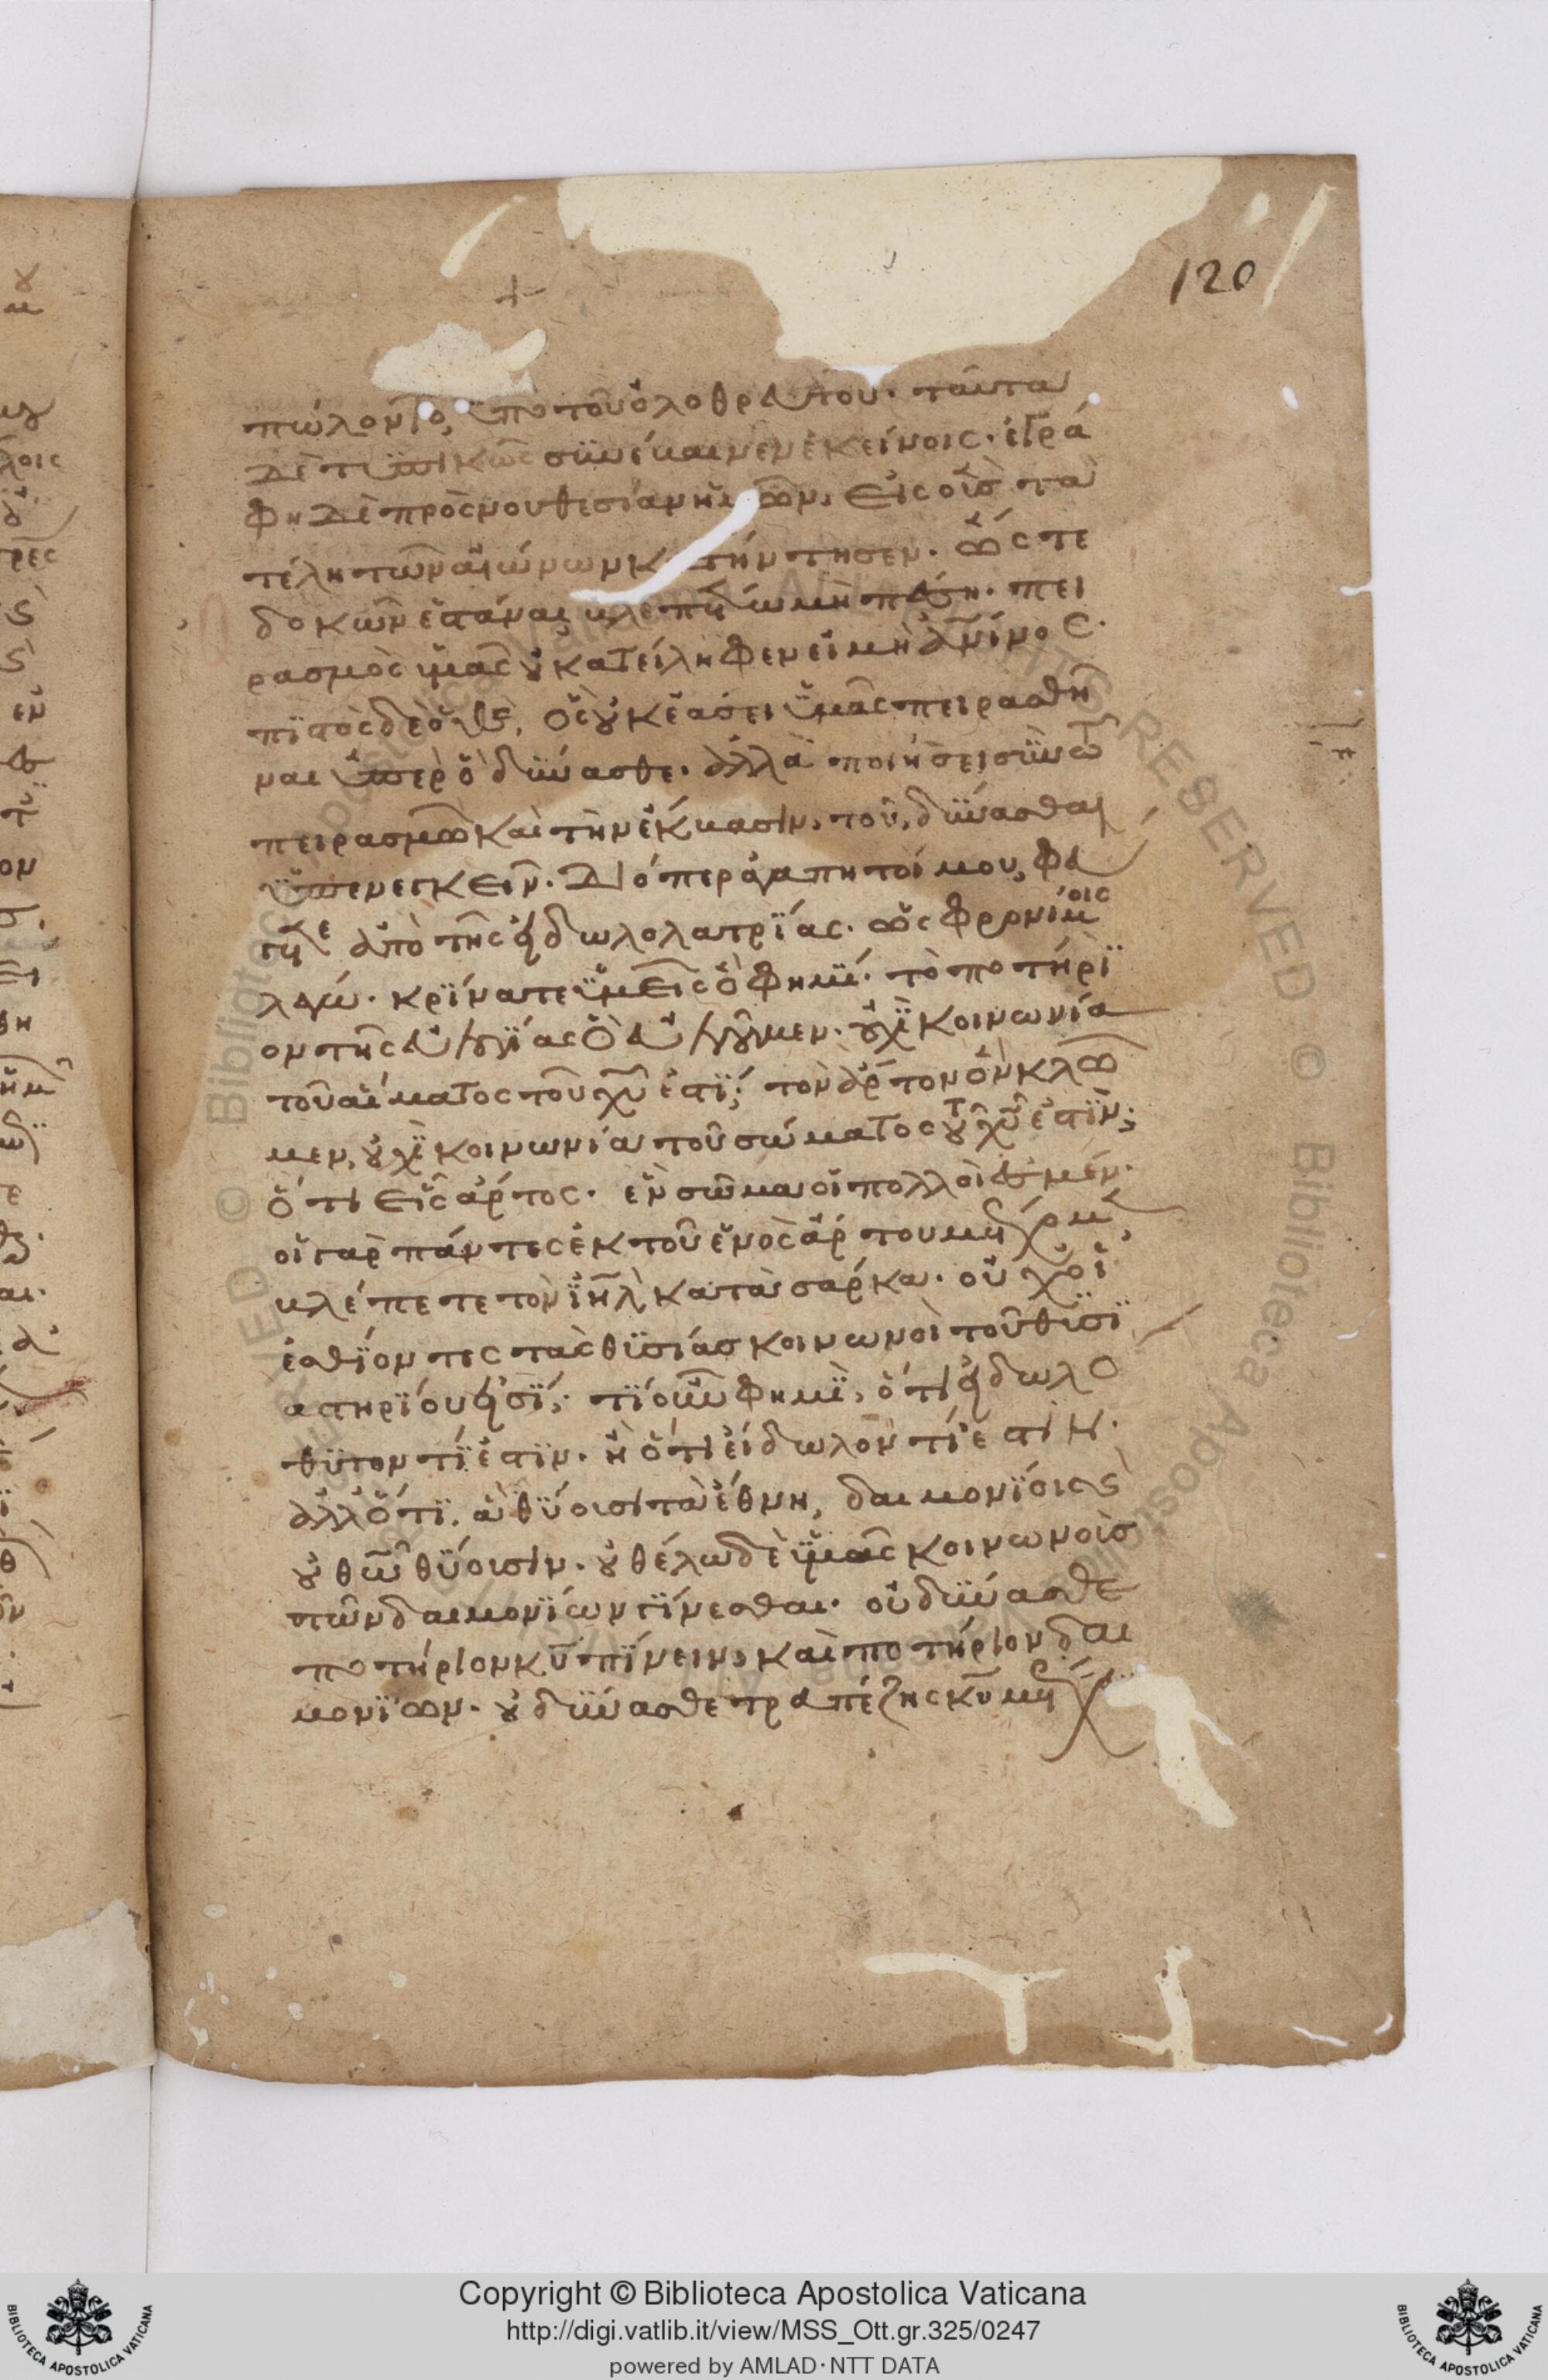 120
πώλοντο, ὑπὸ τοῦ ὀλοθρευτοῦ. ταῦτα
δὲ τυπικῶς συνέβαινεν ἐκείνοις. ἐγρά
φη δὲ πρὸς νουθεσίαν ἡμῶν, εἰς οἷς τὰ
τέλη τῶν αἰώνων κατήντησεν. ὥς τε
δοκῶν ἑστάναι βλεπέτω μὴ πέση. πει
ρασμὸς ὑμᾶς οὐκ ατείληφεν εἰ μὴ ἀν̅ινος.
πϊστὸς δὲ ὁ θς̅, ὃς οὐκ ἐάσει ὑμᾶς πειρασθῆ
ναι ὑπὲρ ὃ δύνασθε. ἀλλὰ ποιήσει σὺν τῶ
πειρασμῶ καὶ τὴν ἔκβασιν, τοῦ, δύνασθαι
ὑπενεγκεῖν. Διόπερ ἀγαπητοί μου, φεύ
γετε ἀπὸ τῆς εἰδωλολατρΐας. ὡς φρονίμοις
λέγω. κρΐνατε ὑμεῖς ὅ φημϊ. τὸ ποτήρϊ
ον τῆς εὐλογΐας ὃ εὐλογοῦμεν. οὐχῒ κοινωνία
τοῦ αἵματος τοῦ χυ̅ ἐστϊ; τὸν ἄρτον ὃν κλῶ
μεν, οὐχῒ κοινωνία τοῦ σώματος τοῦ χυ̅ ἐστϊν;
ὅτι εἷς ἄρτος. ἓν σῶμα οἱ πολλοί ἐσμέν.
οἱ γὰρ πάντες ἐκ τοῦ ἑνὸς ἄρτου μετέχομεν,
βλέπετε τὸν ἰη̅λ κατὰ σάρκα. οὐχ οἱ
ἐσθΐοντες τὰς θϋσίας κοινωνοὶ τοῦ θϋσϊ
αστηρΐου εἰσΐ; τΐ οὖν φημϊ, ὅτι εἰδωλο
θϋτον τΐ ἐστϊν. ἢ ὅτι εἴδωλον τί ἐστιν.
ἀλλ ὅτϊ, ἃ θΰουσι τὰ ἔθνη, δαιμονΐοις ϗ
οὐ θω̅ θΰουσιν. οὐ θέλω δὲ ὑμᾶς κοινωνοὺς
τῶν δαιμονΐων γΐνεσθαι. οὐ δύνασθε
ποτήριον κυ̅ πΐνειν, καὶ ποτήριον δαι
μονΐων. οὐ δύνασθε τραπέζης κυ̅
Copyright © Biblioteca Apostolica Vaticana
http://digi.vatlib.it/view/MSS_Ott.gr.325/0247
powered by AMLAD·NTT DATA
BIBLIOTECA APOSTOLICA VATICANA
BIBLIOTECA APOSTOLICA VATICANA